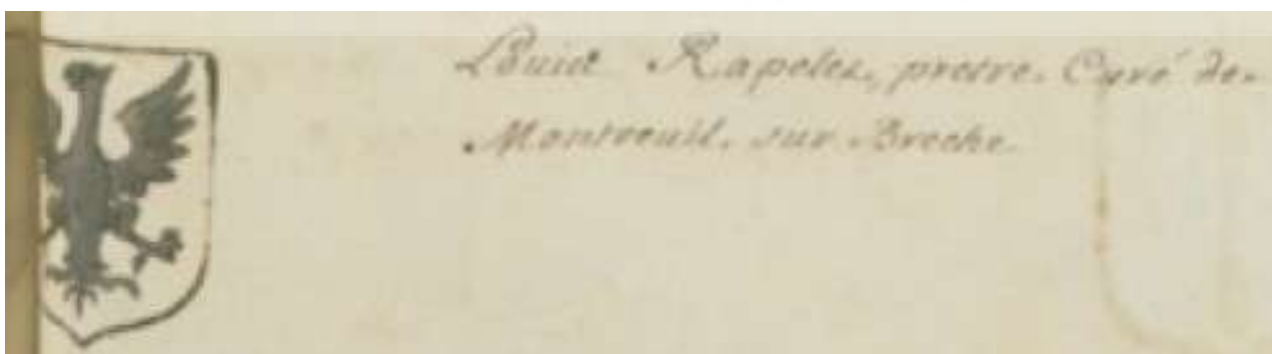 Louis Rapelet, pretre. Curé de.
Montreuil. sur Breche